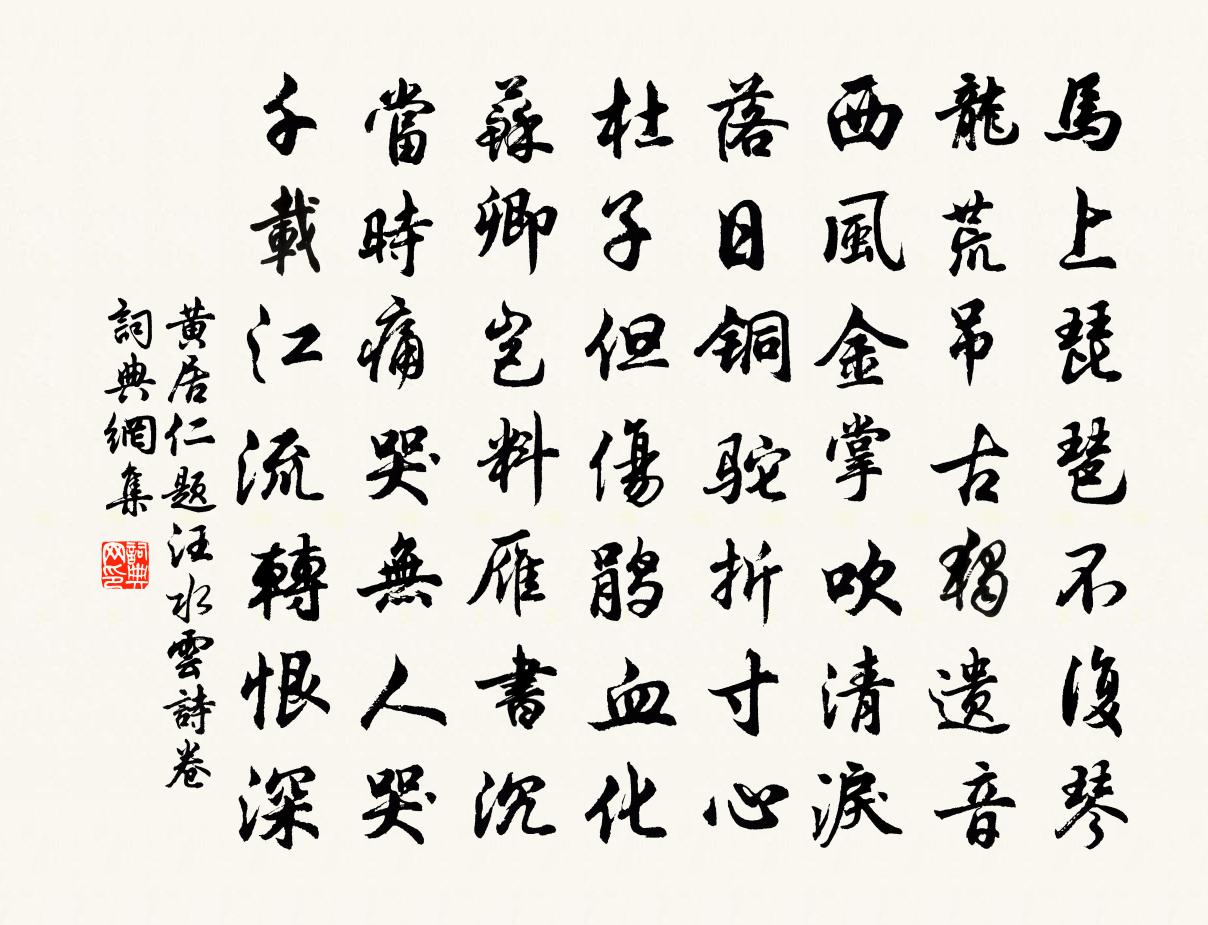 馬上琵琶不復琴
龍荒吊古獨遺音
西風金掌吹清淚
落日銅駝折寸心
杜子但傷鵑血化
蘇卿豈料雁書沉
當時痛哭無人哭
千載江流轉恨深
黃居仁題汪水雲詩卷
詞典網集
詞典网印